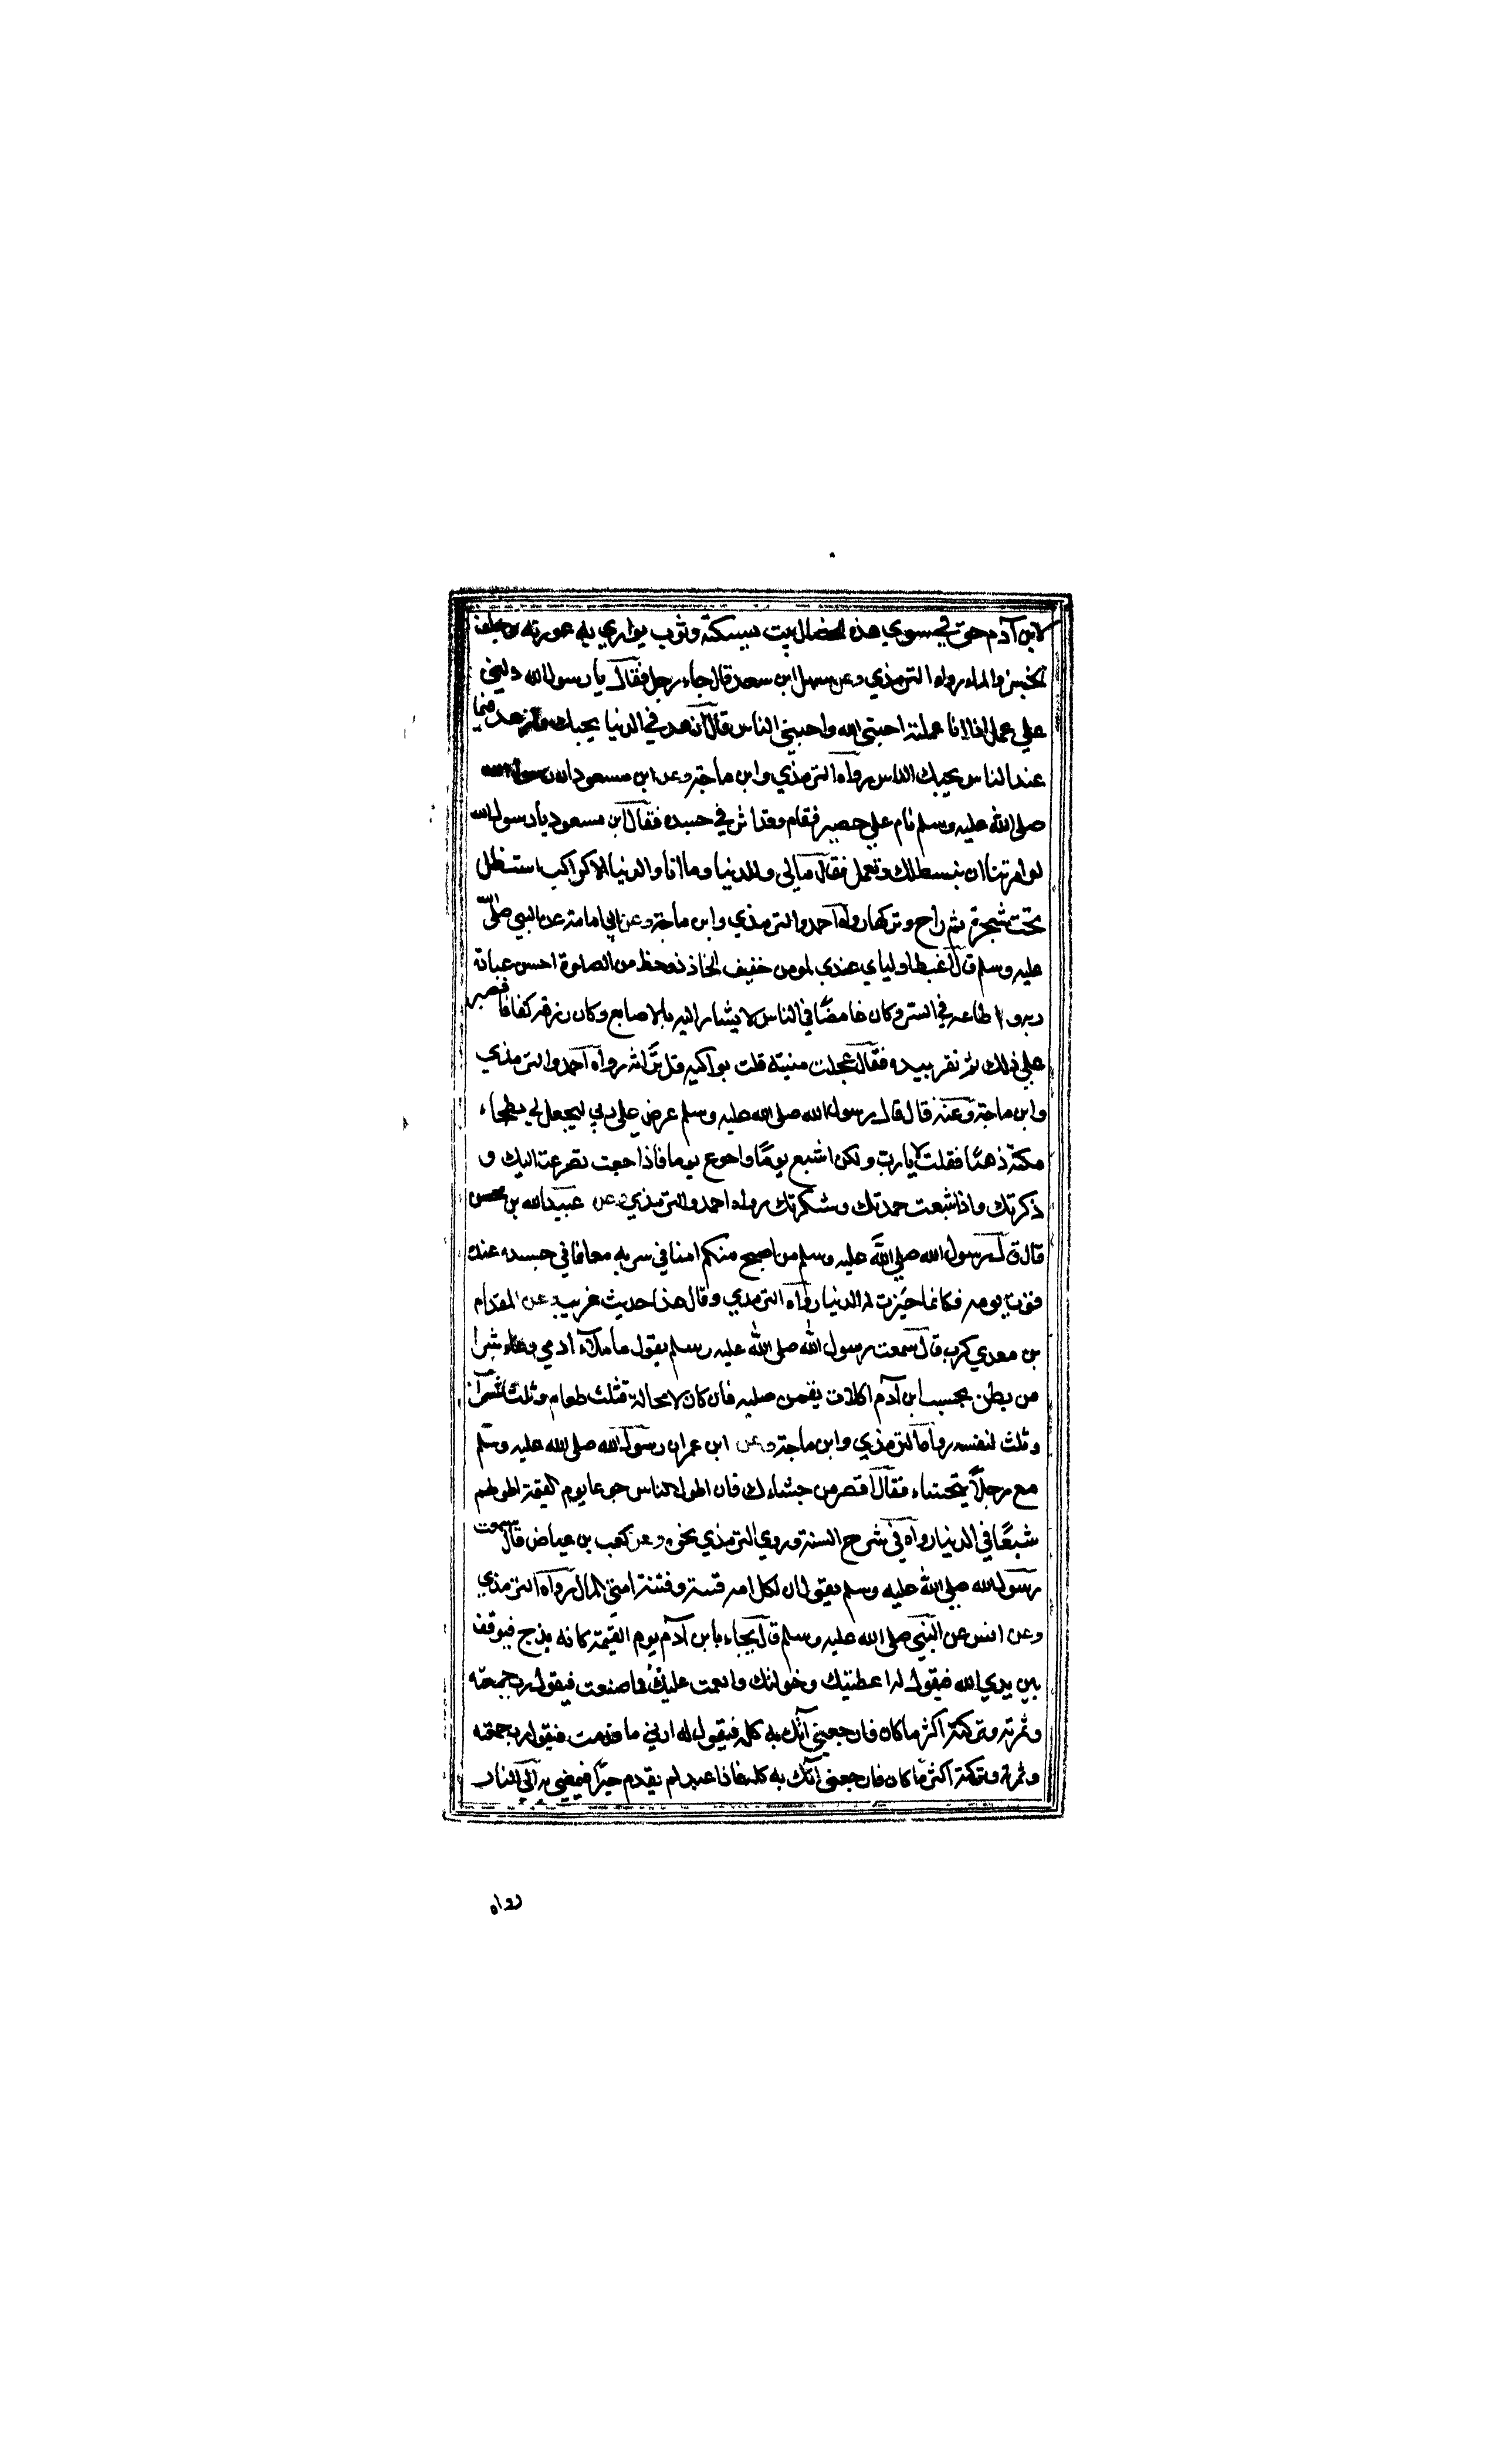 لابن آدم حق في سوي هذه الخصال بيت يسكنه وثوب يواري به عورته وجلف
الخبز والماء رواه الترمذي وعن سهل ابن سعد قال جاء رجل فقال يا رسول الله دلني
علي عمل اذا انا عملته احبني الله واحبني الناس قال ازهد في الدنيا يحبك الله وازهد فيما
عند الناس يحبك الناس رواه الترمذي وابن ماجة وعن ابن مسعود ان رسول الله
صلى الله عليه وسلم نام علي حصير فقام وقد اثر في جسده فقال ابن مسعود يا رسول الله
لو امرتنا ان نبسط لك ونعمل فقال مالي وللدنيا وما انا والدنيا الا كراكب استظل
تحت شجرة ثم راح وتركها رواه احمد والترمذي وابن ماجة وعن ابي امامة عن النبي صلى الله
عليه وسلم قال اغبط اوليائي عندي لمومن خفيف الحاذ ذو حظ من الصلوة احسن عبادة
ربه واطاعه في السر وكان غامضًا في الناس لا يشار اليه بالاصابع وكان رزقه كفافا فصبر
علي ذلك ثم نقر بيده فقال عجلت منيته قلت بواكيه قل تراثه رواه احمد والترمذي
وابن ماجة وعنه قال قال رسول الله صلى الله عليه وسلم عرض علي ربي ليجعل لي بطحاء
مكة ذهبًا فقلت لا يا رب ولكن اشبع يومًا واجوع يوما فاذا جعت تضرعت اليك و
ذكرتك واذا شبعت حمدتك وشكرتك رواه احمد والترمذي وعن عبيد الله بن محصن
قال قال رسول الله صلي الله عليه وسلم من اصبح منكم امنا في سربه معافا في جسده عنده
قوت يومه فكانما حيزت له الدنيا رواه الترمذي وقال هذا حديث غريب وعن المقدام
بن معدي كرب قال سمعت رسول الله صلى الله عليه وسلم يقول ما ملأ ادمي وعاء شرا
من بطن بحسب ابن آدم اكلات يقمن صلبه فان كان لا محالة فثلث طعام وثلث شراب
وثلث لنفسه رواه الترمذي وابن ماجة وعن ابن عمر ان رسول الله صلى الله عليه وسلم
سمع رجلًا يتجشاء فقال اقصر من جشاءك فان اطول الناس جوعا يوم القيمة اطولهم
شبعًا في الدنيا رواه في شرح السنة وروي الترمذي نحوه وعن كعب بن عياض قال سمعت
رسول الله صلي الله عليه وسلم يقول ان لكل امة فتنة وفتنة امتي المال رواه الترمذي
وعن انس عن النبي صلى الله عليه وسلم قال يجاء بابن آدم يوم القيمة كانه بذج فيوقف
بين يدي الله فيقول له اعطيتك وخولتك وانعمت عليك فما صنعت فيقول رب جمعته
وثمرته وتركته اكثر ما كان فارجعني آتك به كله فيقول له ارني ما قدمت فيقول رب جمعته
وثمرته وتركته اكثر ما كان فارجعني آتك به كله فاذا عبد لم يقدم خيرًا فيمضي به الى النار
رواه